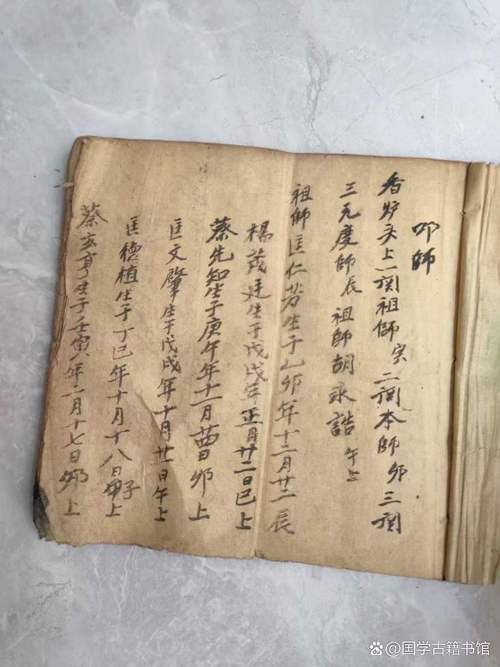 叩師
香炉头上一派祖師寅二派本師卯三派
三元度師辰祖師胡永誥午上
祖師匡仁芳生于乙卯年十二月廿二辰
楊茂廷生于戊戌年正月廿二日巳上
蔡先知生于庚午年十二月廿四日卯上
匡文肇生于戊戌年十月廿一日午上
匡德植生于丁巳年十月十八日子上
蔡玄亨生于壬寅年二月十七日卯上
@国学古籍书馆